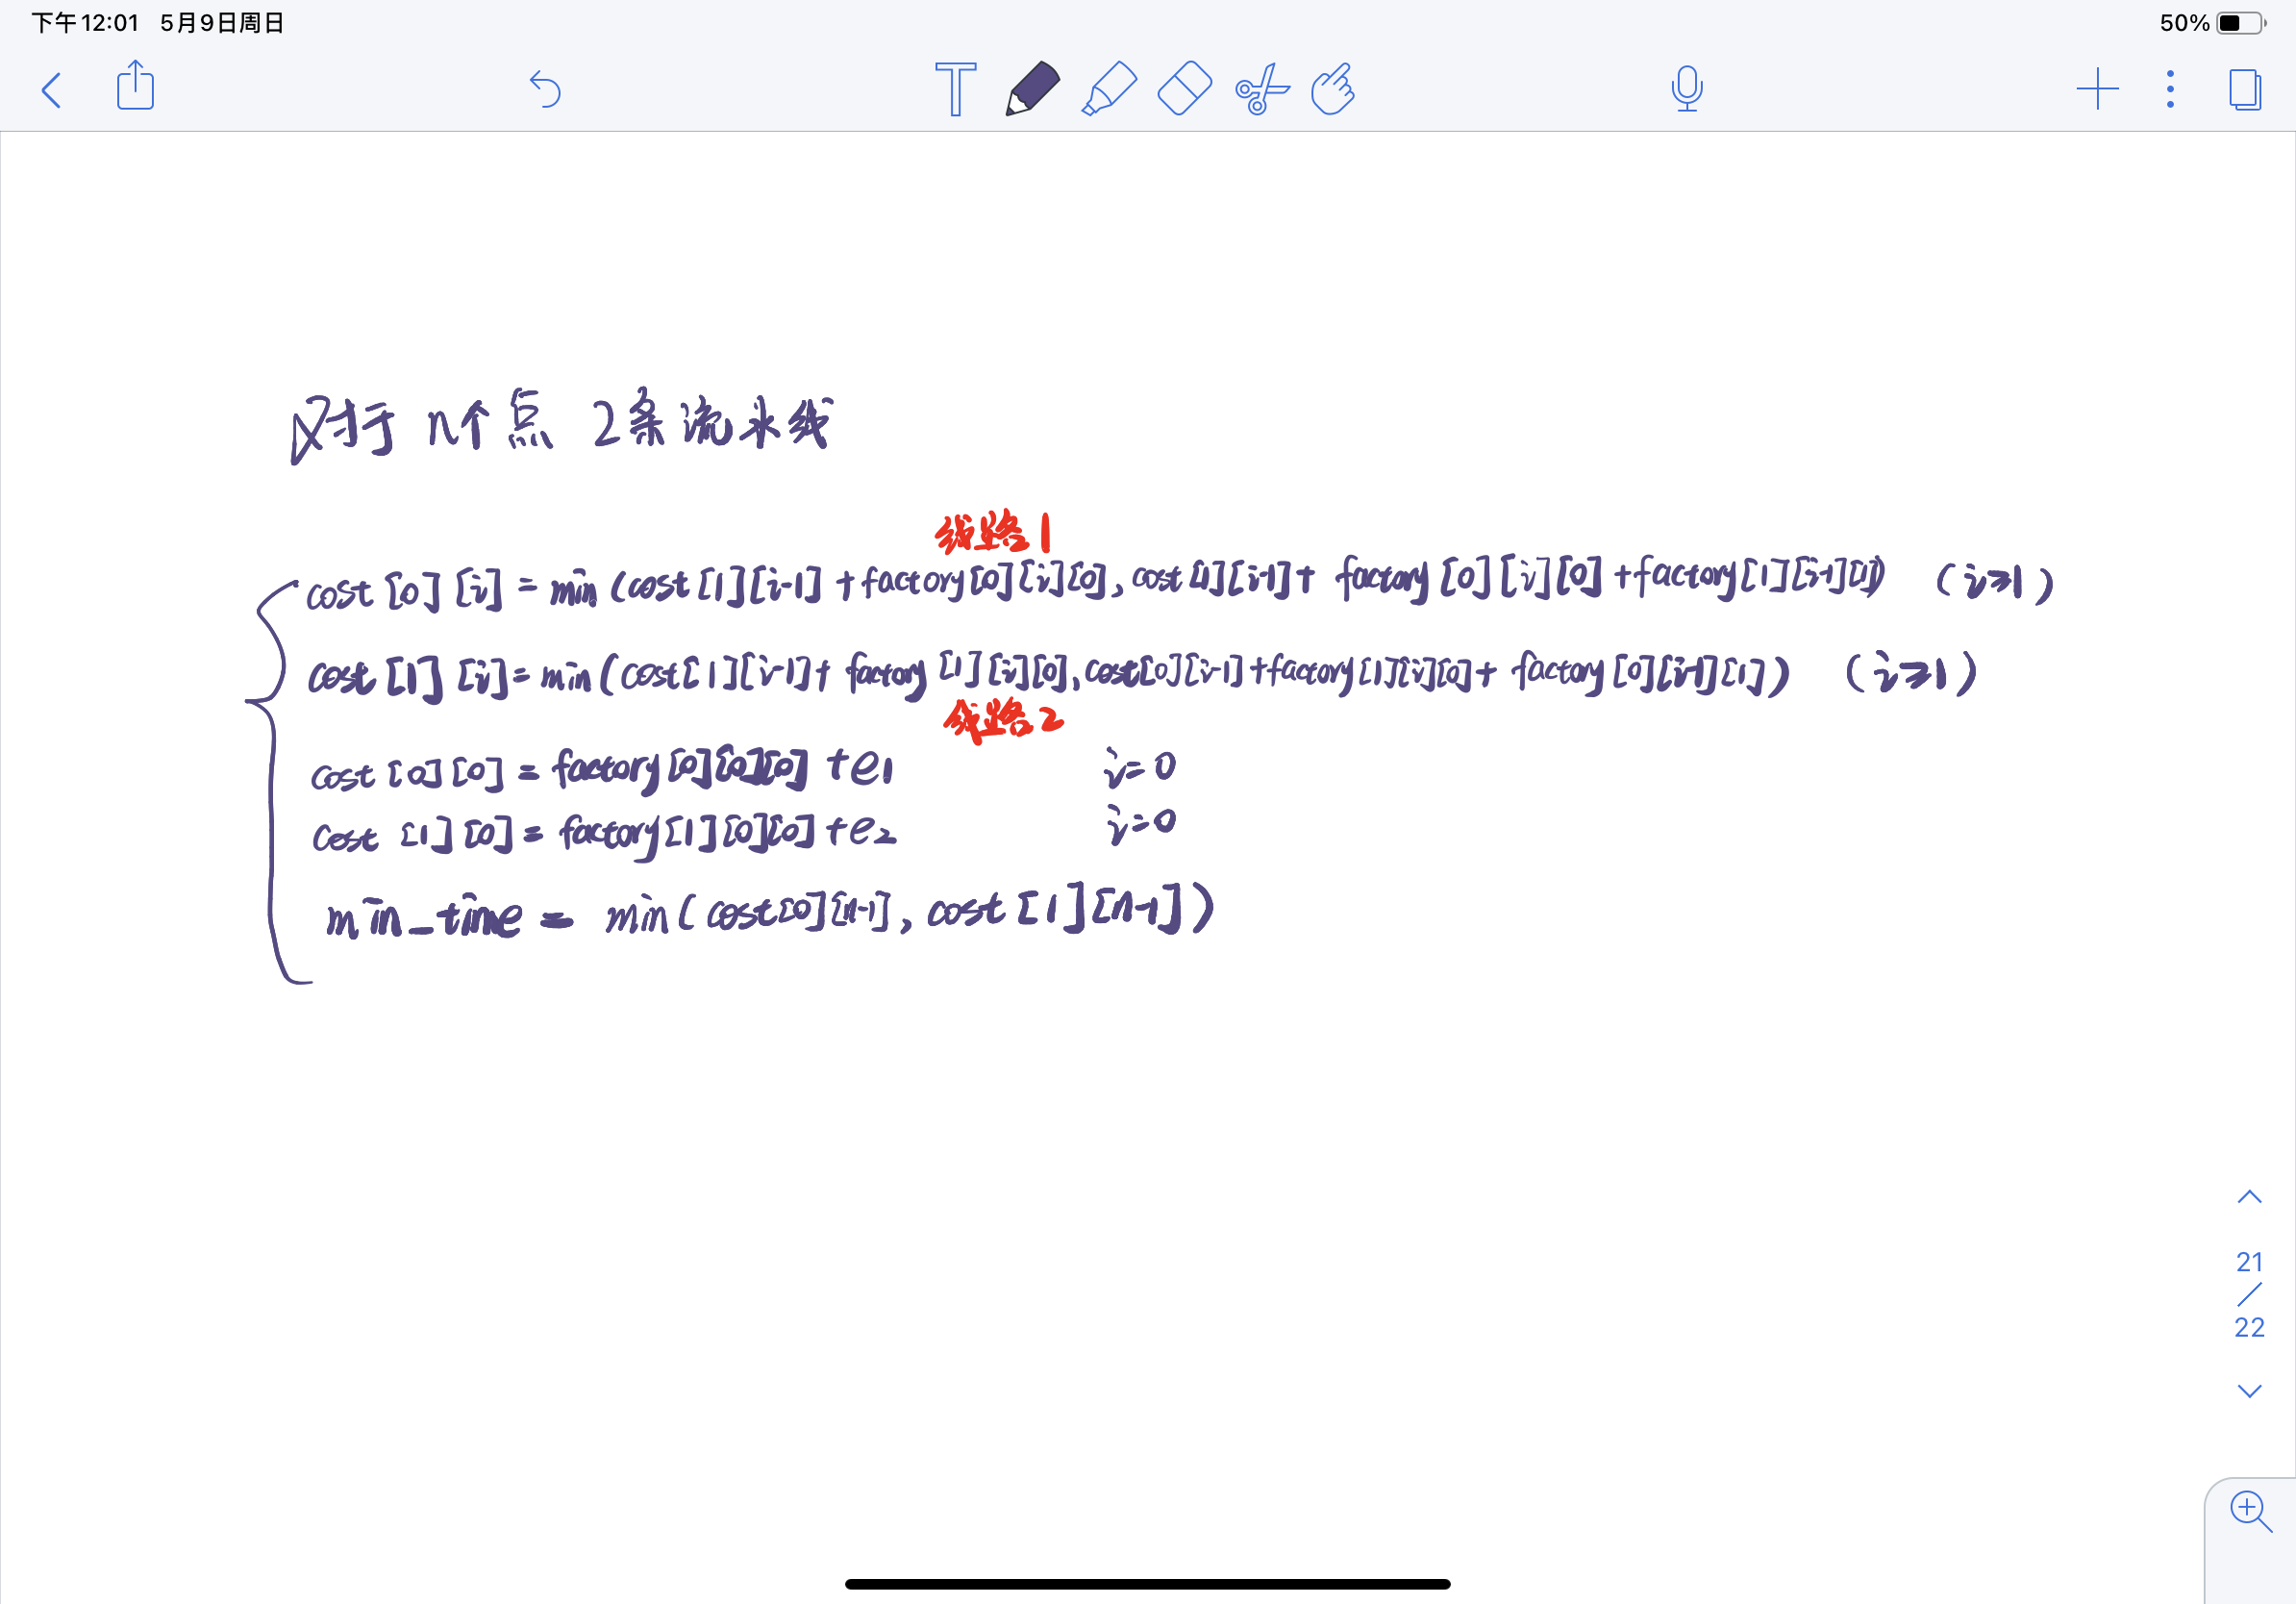 下午12:01 5月9日周日
50%
T
对于 n个点 2条流水线
线路1
cost[0][i] = min(cost[1][i-1]+factory[0][i][0], cost[1][i-1]+factory[0][i][0]+factory[1][i-1][1]) (i≥1)
cost[1][i]=min(cost[1][i-1]+factory[1][i][0],cost[0][i-1]+factory[1][i][0]+factory[0][i-1][1]) (i≥1)
线路2
cost[0][0]=factory[0][0][0]+e1 i=0
cost[1][0]=factory[1][0][0]+e2 i=0
min_time = min(cost[0][n-1], cost[1][n-1])
21
/
22